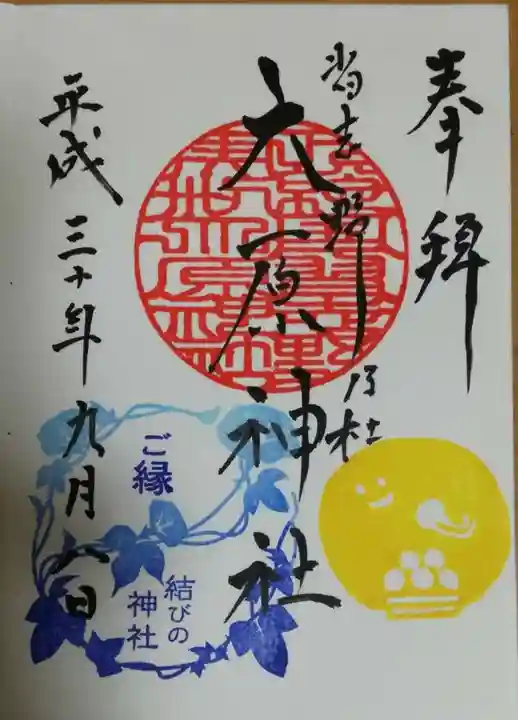 奉拝
習志野
大原神社
平成三十年九月八日
ご縁
結びの
神社